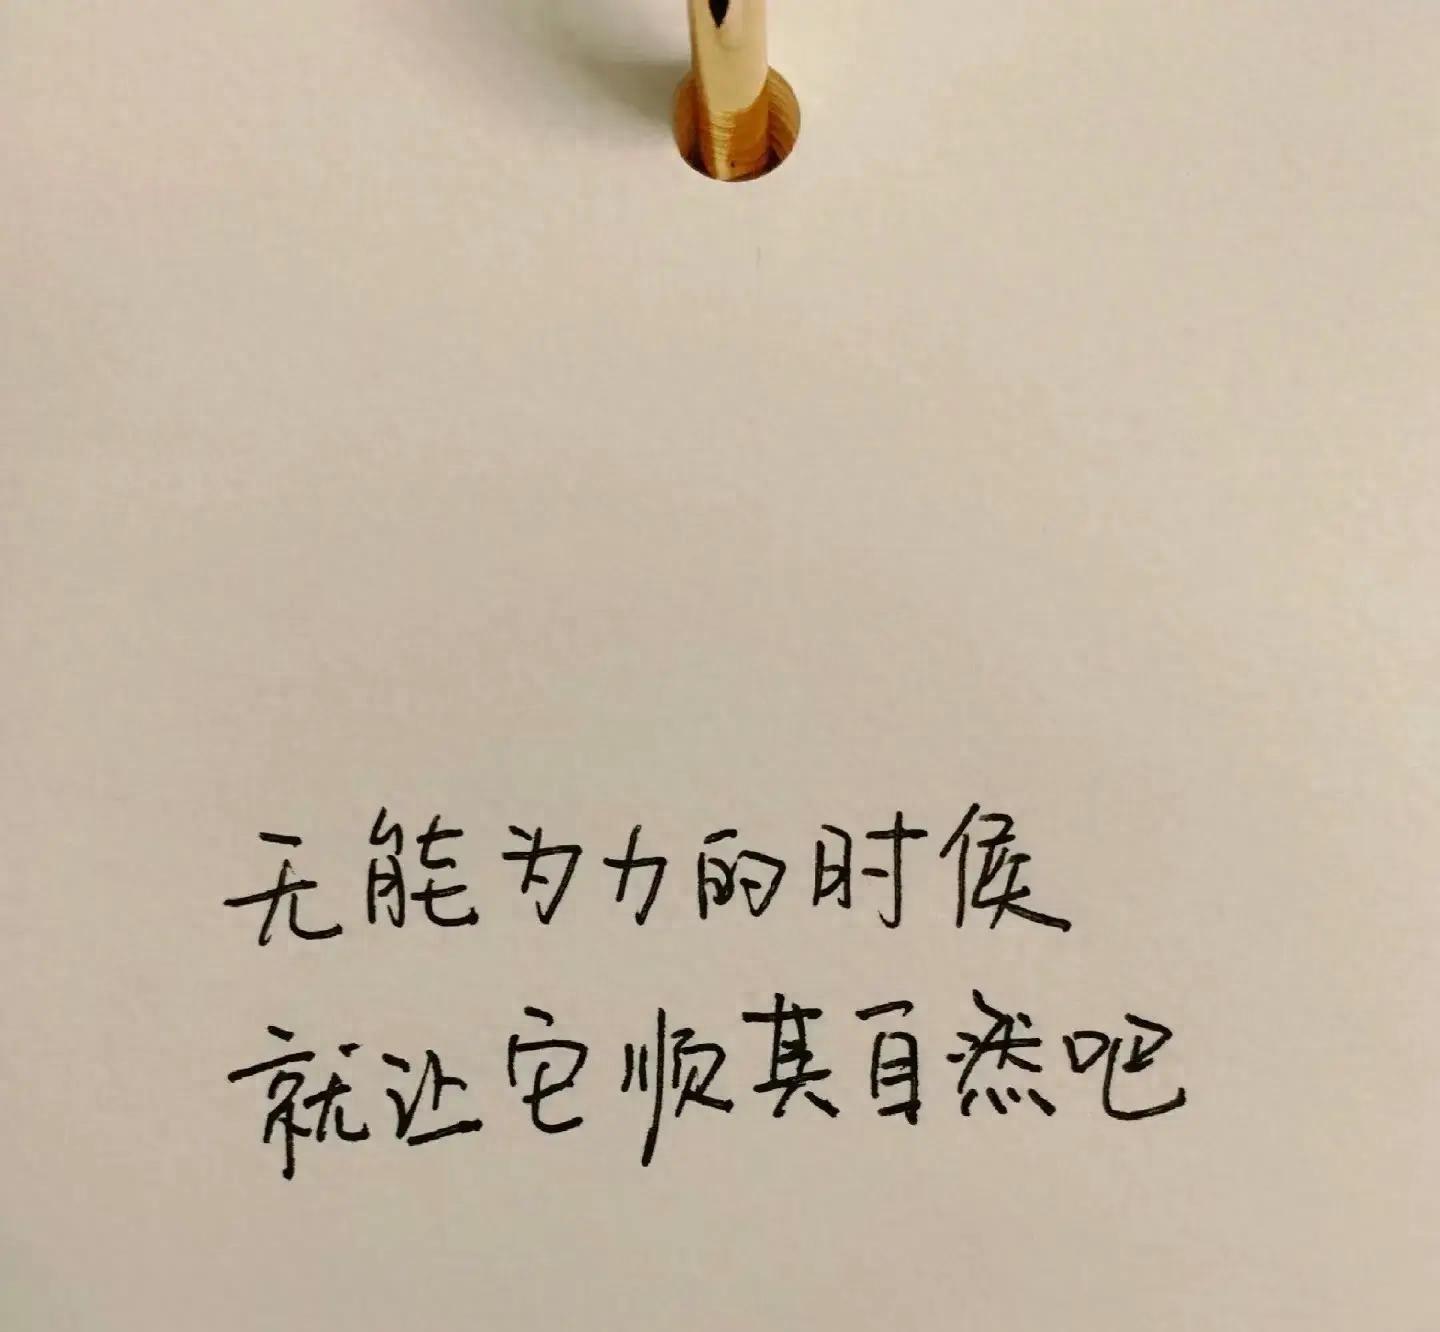 无能为力的时候
就让它顺其自然吧